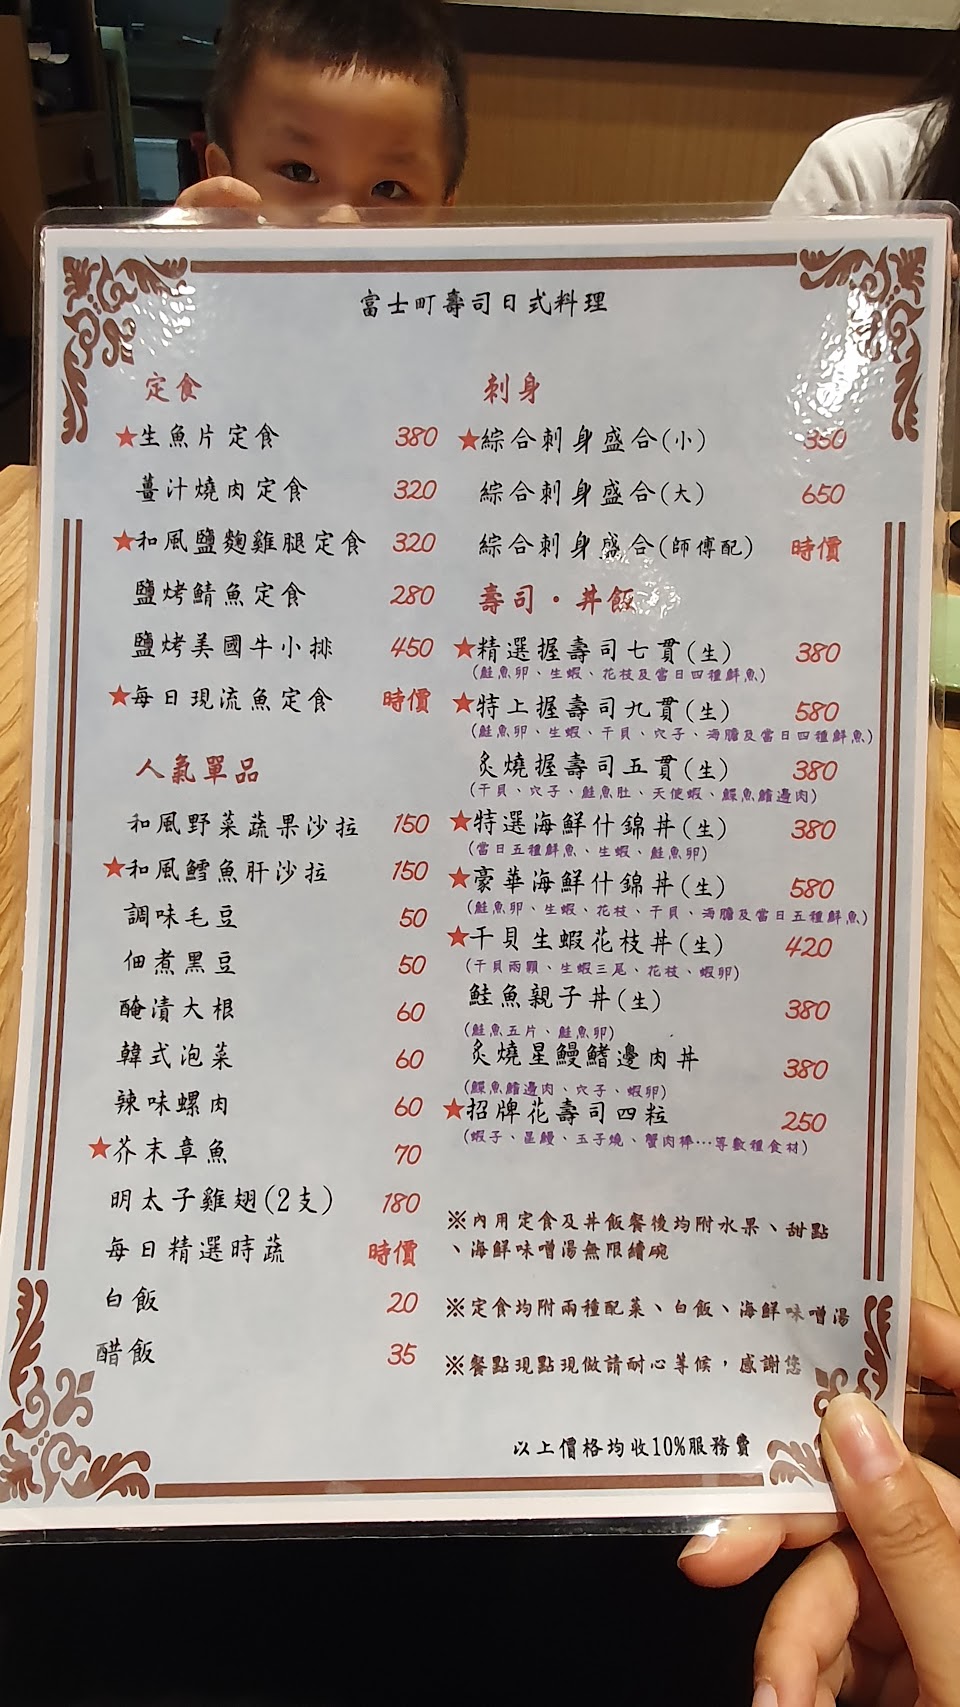 富士町壽司日式料理
定食
★生魚片定食 380
薑汁燒肉定食 320
★和風鹽麴雞腿定食 320
鹽烤鯖魚定食 280
鹽烤美國牛小排 450
★每日現流魚定食 時價
人氣單品
和風野菜蔬果沙拉 150
★和風鱈魚肝沙拉 150
調味毛豆 50
佃煮黑豆 50
醃漬大根 60
韓式泡菜 60
辣味螺肉 60
★芥末章魚 70
明太子雞翅(2支) 180
每日精選時蔬 時價
白飯 20
醋飯 35
刺身
★綜合刺身盛合(小) 350
綜合刺身盛合(大) 650
綜合刺身盛合(師傅配) 時價
壽司・丼飯
★精選握壽司七貫(生) 380
(鮭魚卵、生蝦、花枝及當日四種鮮魚)
★特上握壽司九貫(生) 580
(鮭魚卵、生蝦、干貝、穴子、海膽及當日四種鮮魚)
炙燒握壽司五貫(生) 380
(干貝、穴子、鮭魚肚、天使蝦、鰈魚鰭邊肉)
★特選海鮮什錦丼(生) 380
(當日五種鮮魚、生蝦、鮭魚卵)
★豪華海鮮什錦丼(生) 580
(鮭魚卵、生蝦、花枝、干貝、海膽及當日五種鮮魚)
★干貝生蝦花枝丼(生) 420
(干貝兩顆、生蝦三尾、花枝、蝦卵)
鮭魚親子丼(生) 380
(鮭魚五片、鮭魚卵)
炙燒星鰻鰭邊肉丼 380
(鰈魚鰭邊肉、穴子、蝦卵)
★招牌花壽司四粒 250
(蝦子、星鰻、玉子燒、蟹肉棒…等數種食材)
※內用定食及丼飯餐後均附水果、甜點
、海鮮味噌湯無限續碗
※定食均附兩種配菜、白飯、海鮮味噌湯
※餐點現點現做請耐心等候，感謝您
以上價格均收10%服務費